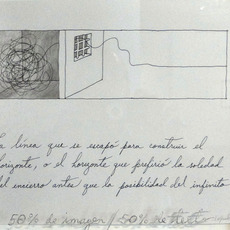 la línea que se escapó para construir el
horizonte, o el horizonte que prefirió la soledad
del encierro antes que la posibilidad del infinito
50% de imagen / 50% de texto